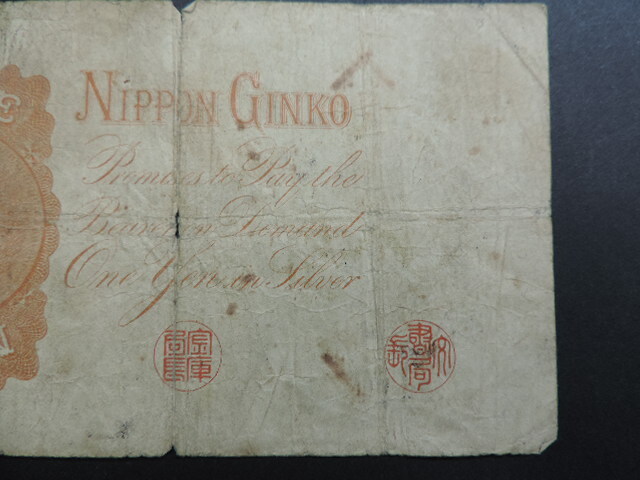 NIPPON GINKO
Promises to Pay the
Bearer on Demand
One Yen in Silver
金庫局長
文書局長